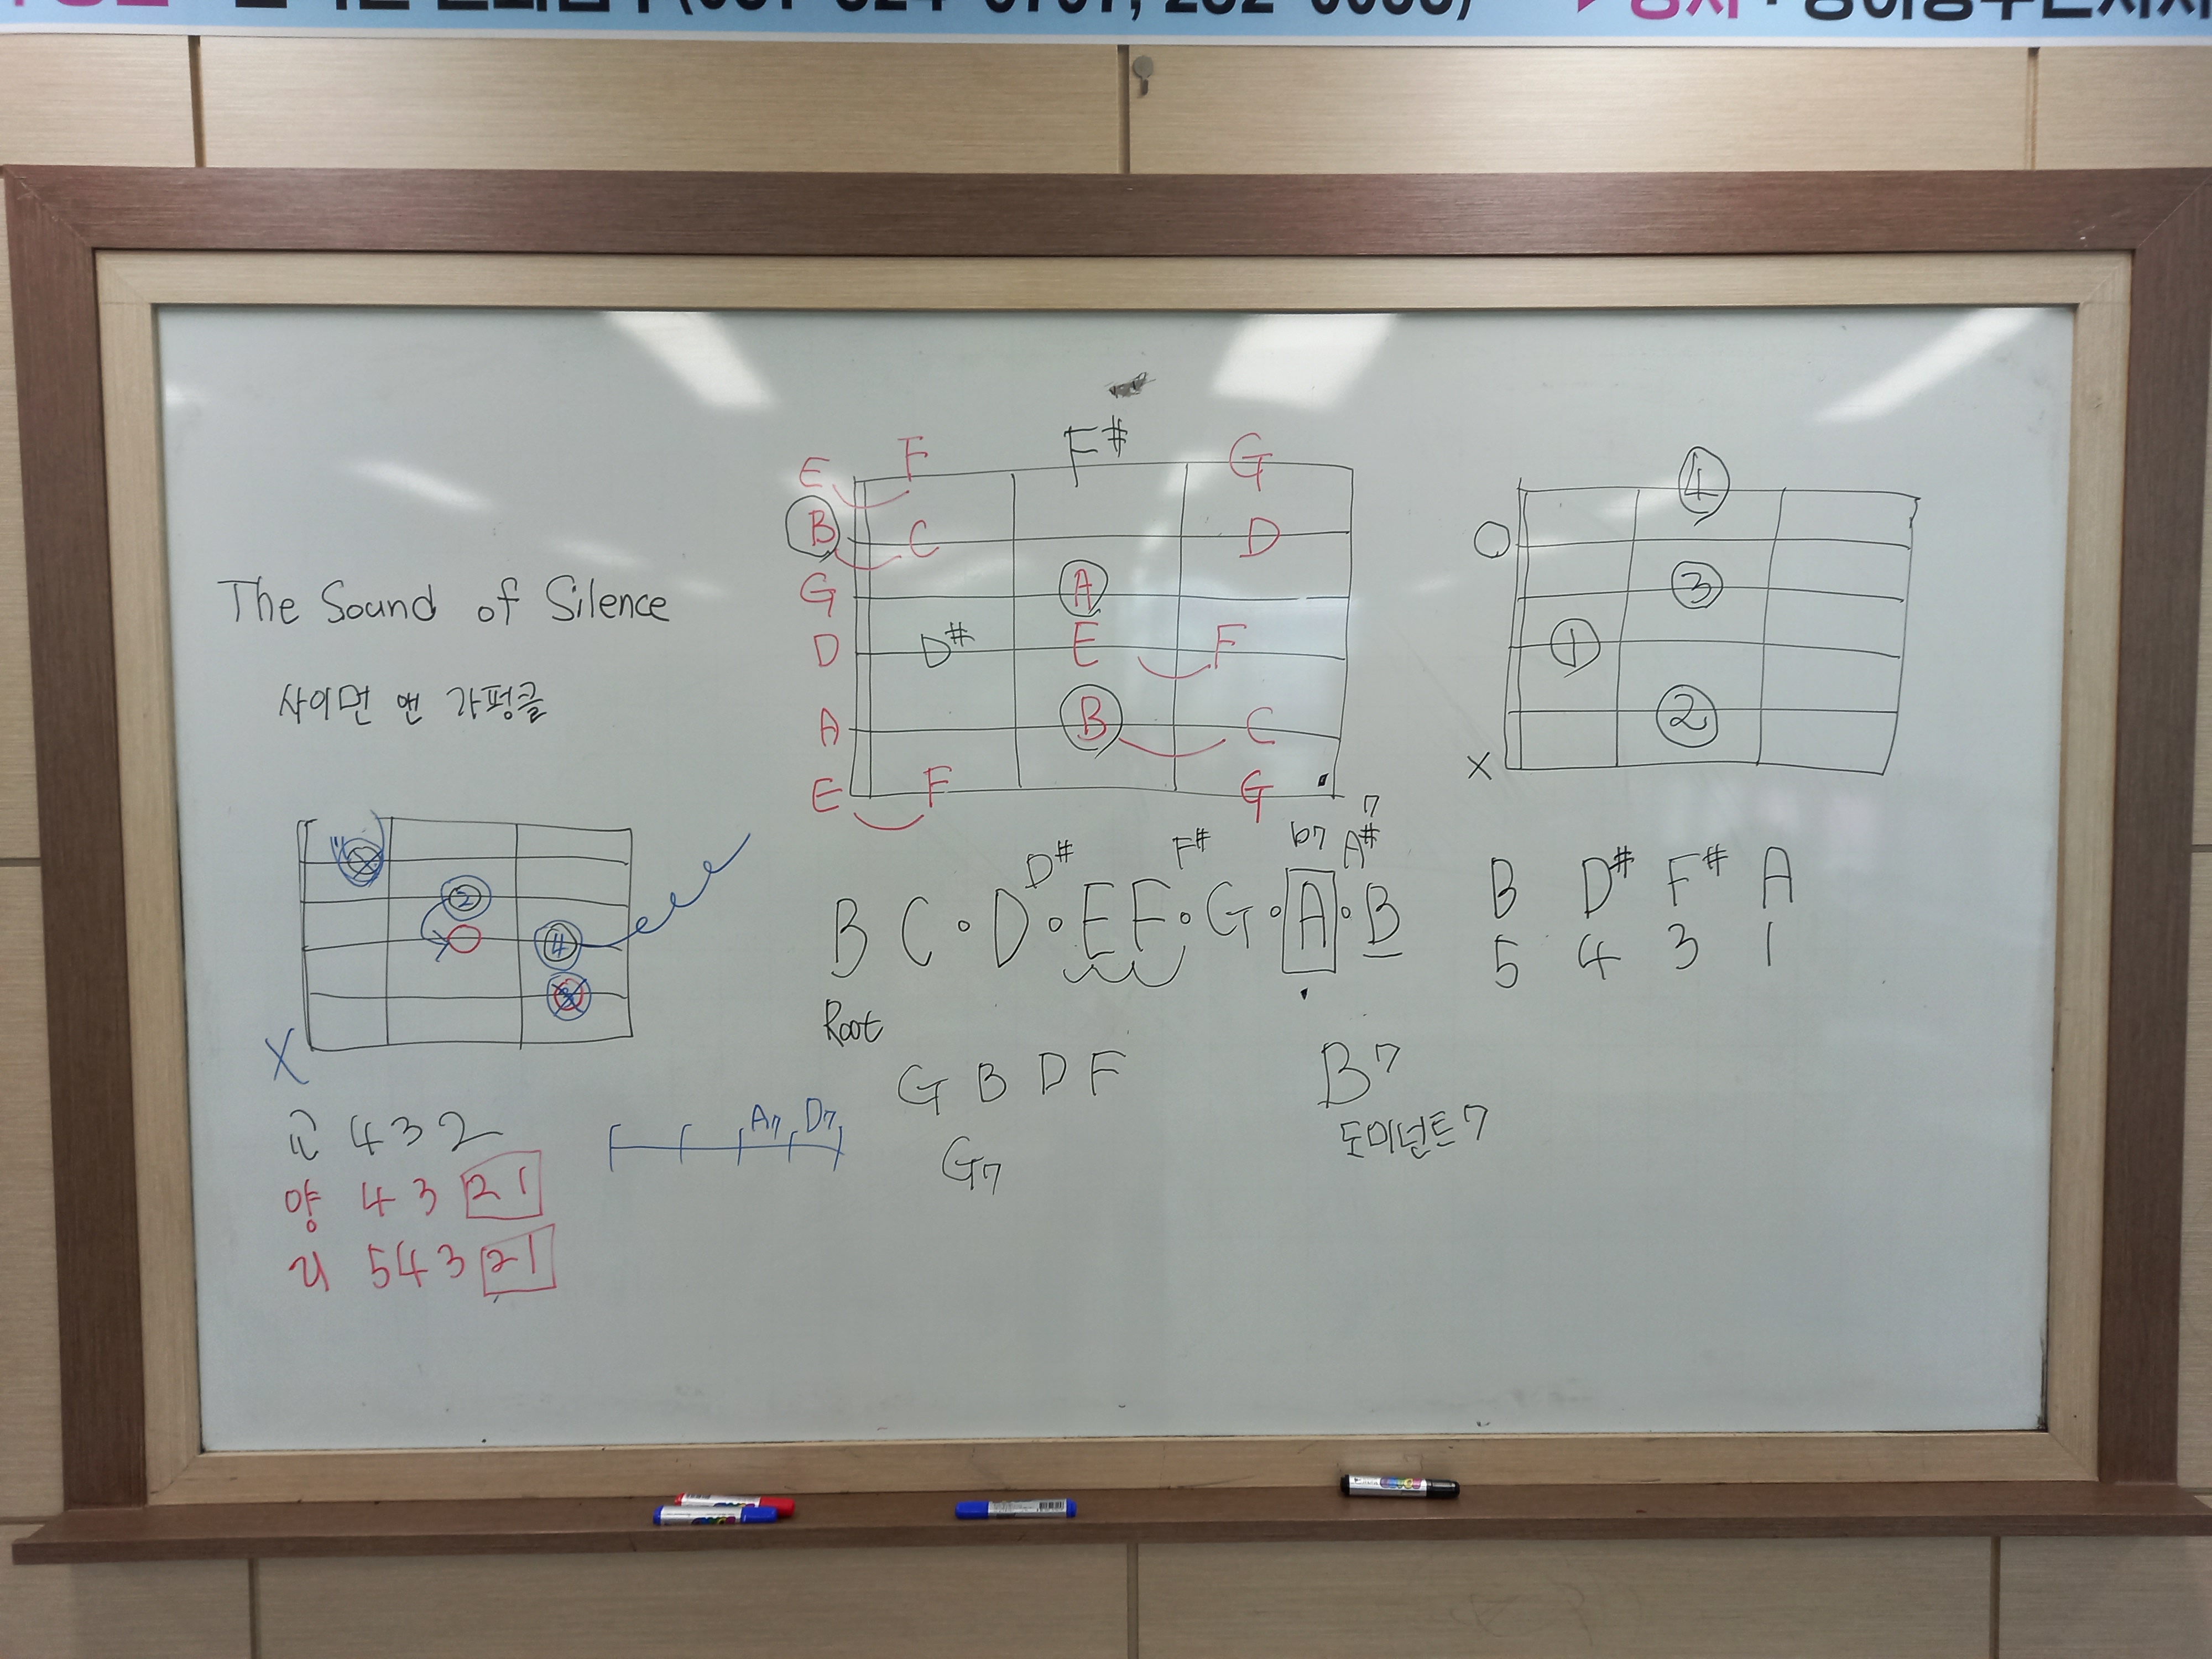 The Sound of Silence
사이먼 앤 가펑클
E F F# G
B C D
G A
D D# E F
A B C
E F G
4
3
1
2
X
2
4
3
X
고 4 3 2
양 4 3 2 1
리 5 4 3 2 1
A7 D7
D# F# b7 7 A#
B C D E F G A B
Root
G B D F
G7
B7
도미넌트7
B D# F# A
5 4 3 1